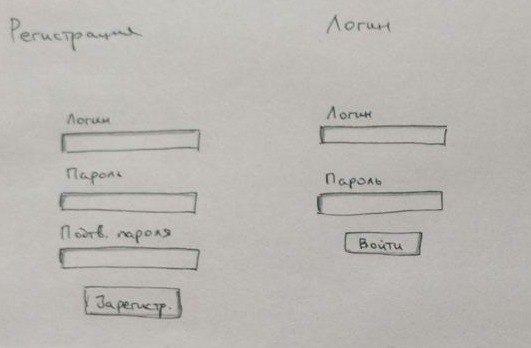 Регистрация
Логин
Пароль
Подтв. пароля
Зарегистр.
Логин
Логин
Пароль
Войти